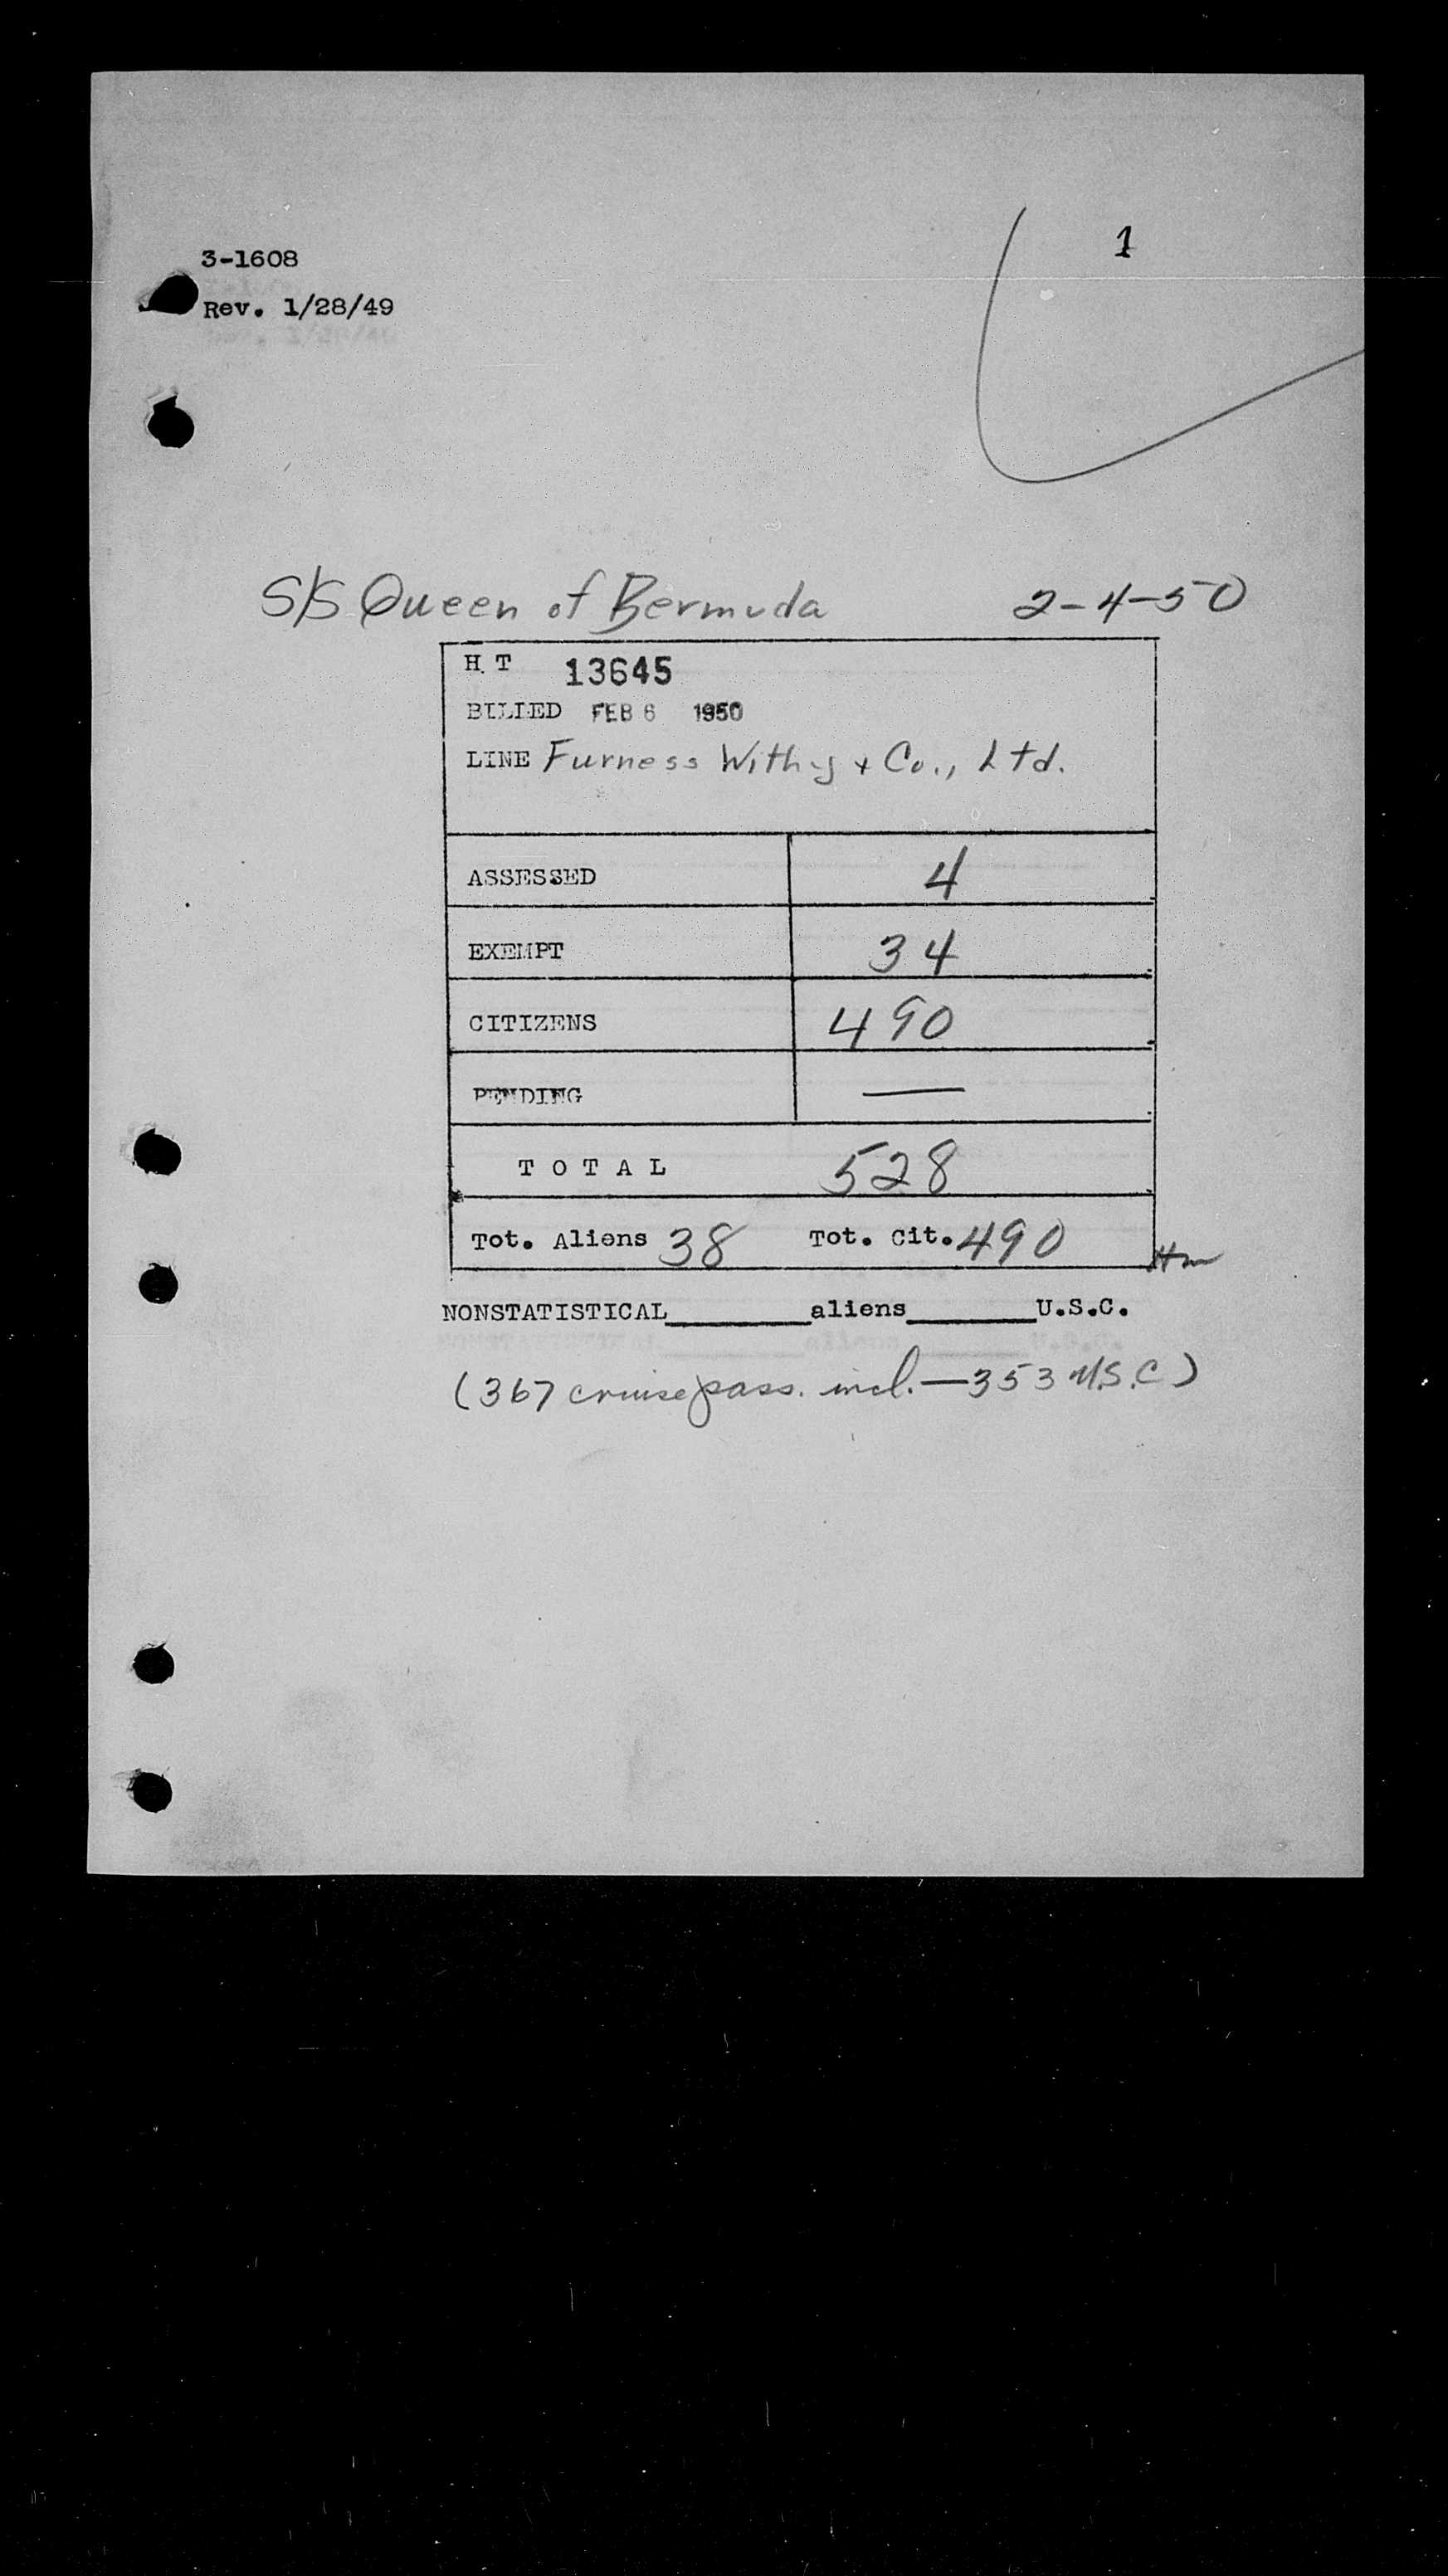 1
3-1608
Rev. 1/28/49
S/S Queen of Bermuda 2-4-50
H T 13645
BILLED FEB 6 1950
LINE Furness Withy + Co., Ltd.
ASSESSED 4
EXEMPT 34
CITIZENS 490
PENDING —
TOTAL 528
Tot. Aliens 38 Tot. Cit. 490
NONSTATISTICAL________aliens_______U.S.C.
(367 cruise pass. incl. — 353 U.S.C)